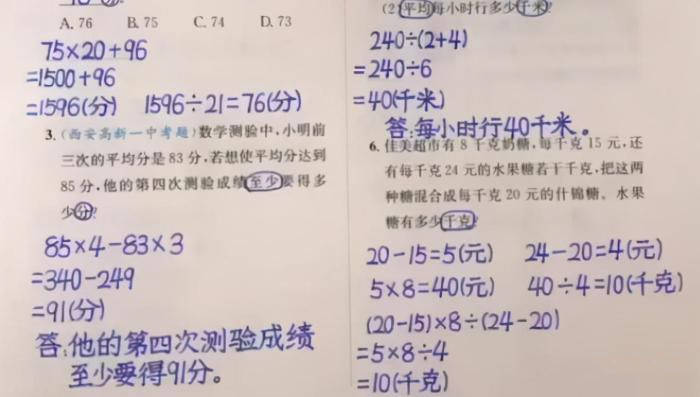 A. 76 B. 75 C. 74 D. 73
75×20+96
=1500+96
=1596(分) 1596÷21=76(分)
3.(西安高新一中考题)数学测验中,小明前
三次的平均分是 83 分,若想使平均分达到
85 分,他的第四次测验成绩至少要得多
少分?
85×4-83×3
=340-249
=91(分)
答:他的第四次测验成绩
至少要得91分。
(2)平均每小时行多少千米?
240÷(2+4)
=240÷6
=40(千米)
答:每小时行40千米。
6. 佳美超市有 8 千克奶糖,每千克 15 元,还
有每千克 24 元的水果糖若干千克,把这两
种糖混合成每千克 20 元的什锦糖。水果
糖有多少千克?
20-15=5(元) 24-20=4(元)
5×8=40(元) 40÷4=10(千克)
(20-15)×8÷(24-20)
=5×8÷4
=10(千克)